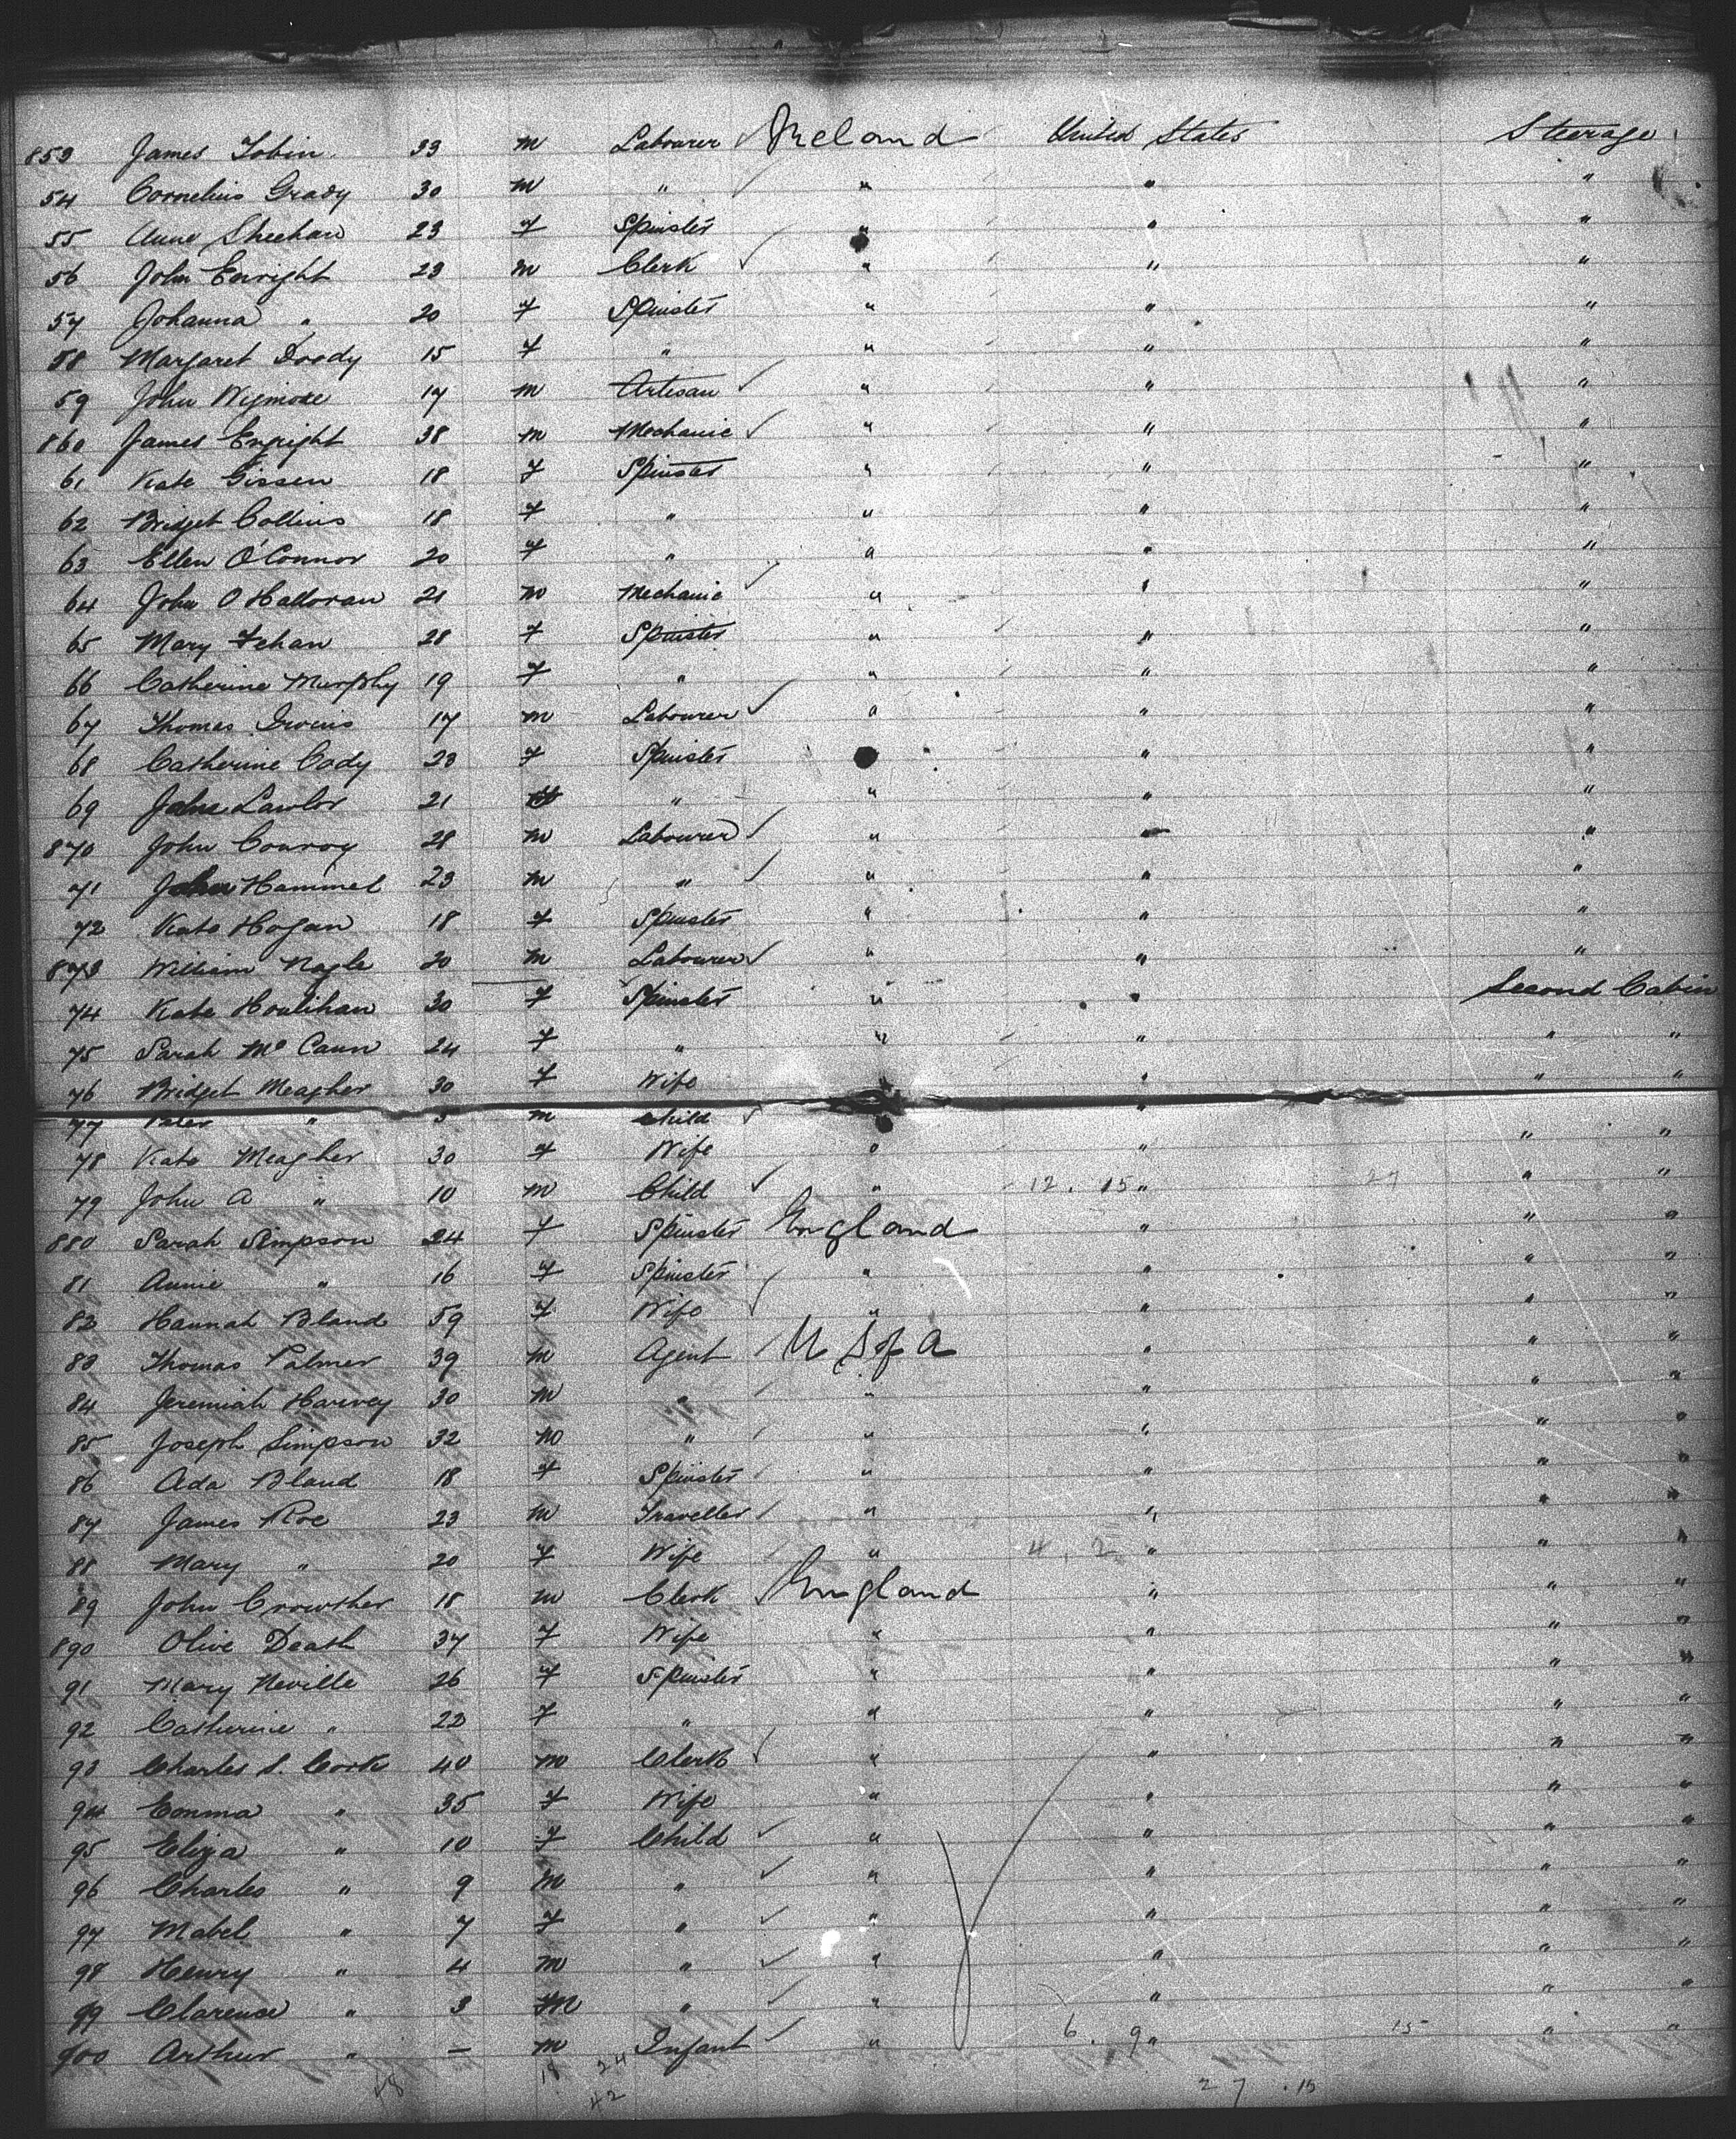 853 James Tobin 33 m Labourer Ireland United States Steerage
54 Cornelius Grady 30 m " " " "
55 Anne Sheehan 23 f Spinster " " "
56 John Enright 23 m Clerk " " "
57 Johanna " 20 f Spinster " " "
58 Margaret Doody 15 f " " " "
59 John Wigmore 17 m Artisan " " "
860 James Enright 38 m Mechanic " " "
61 Kate Gissen 18 f Spinster " " "
62 Bridget Collins 18 f " " " "
63 Ellen O'Connor 20 f " " " "
64 John O Halloran 21 m Mechanic " " "
65 Mary Fehan 28 f Spinster " " "
66 Catherine Murphy 19 f " " " "
67 Thomas 17 m Labourer " " "
68 Catherine Cody 23 f Spinster " "
69 Lawlor 21 " " " "
870 John Conroy 28 m Labourer " " "
71 John Hammel 23 m " " " "
72 Kate Hogan 18 f Spinster " " "
873 William Nagle 20 m Labourer " " "
74 Kate Houlihan 30 f Spinster " " Second Cabin
75 Sarah Mc Cann 24 f " " " " "
76 Bridget Meagher 30 f Wife " " " "
77 " m Child "
78 Kate Meagher 30 f Wife " " " "
79 John A " 10 m Child " 12 . 15 " 27 " "
880 Sarah Simpson 24 f Spinster England " " "
81 Annie " 16 f Spinster " " " "
82 Hannah Bland 59 f Wife " " " "
83 Thomas Palmer 39 m Agent U S of A " " "
84 Jeremiah Harvey 30 m " " " " "
85 Joseph Simpson 32 m " " " " "
86 Ada Bland 18 f Spinster " " " "
87 James Roe 23 m Traveller " " " "
88 Mary " 20 f Wife " 4 . 2 " " "
89 John Crowther 18 m Clerk England " " "
890 Olive Death 37 f Wife " " " "
91 Mary Neville 26 f Spinster " " " "
92 Catherine " 22 f " " " " "
93 Charles S. Cork 40 m Clerk " " " "
94 Emma " 35 f Wife " " " "
95 Eliza " 10 f Child " " " "
96 Charles " 9 m " " " " "
97 Mabel " 7 f " " " " "
98 Henry " 4 m " " " " "
99 Clarence " 3 m " " " " "
900 Arthur " — m Infant " 6 . 9 " 15 " "
48 18 24 27 . 15
42